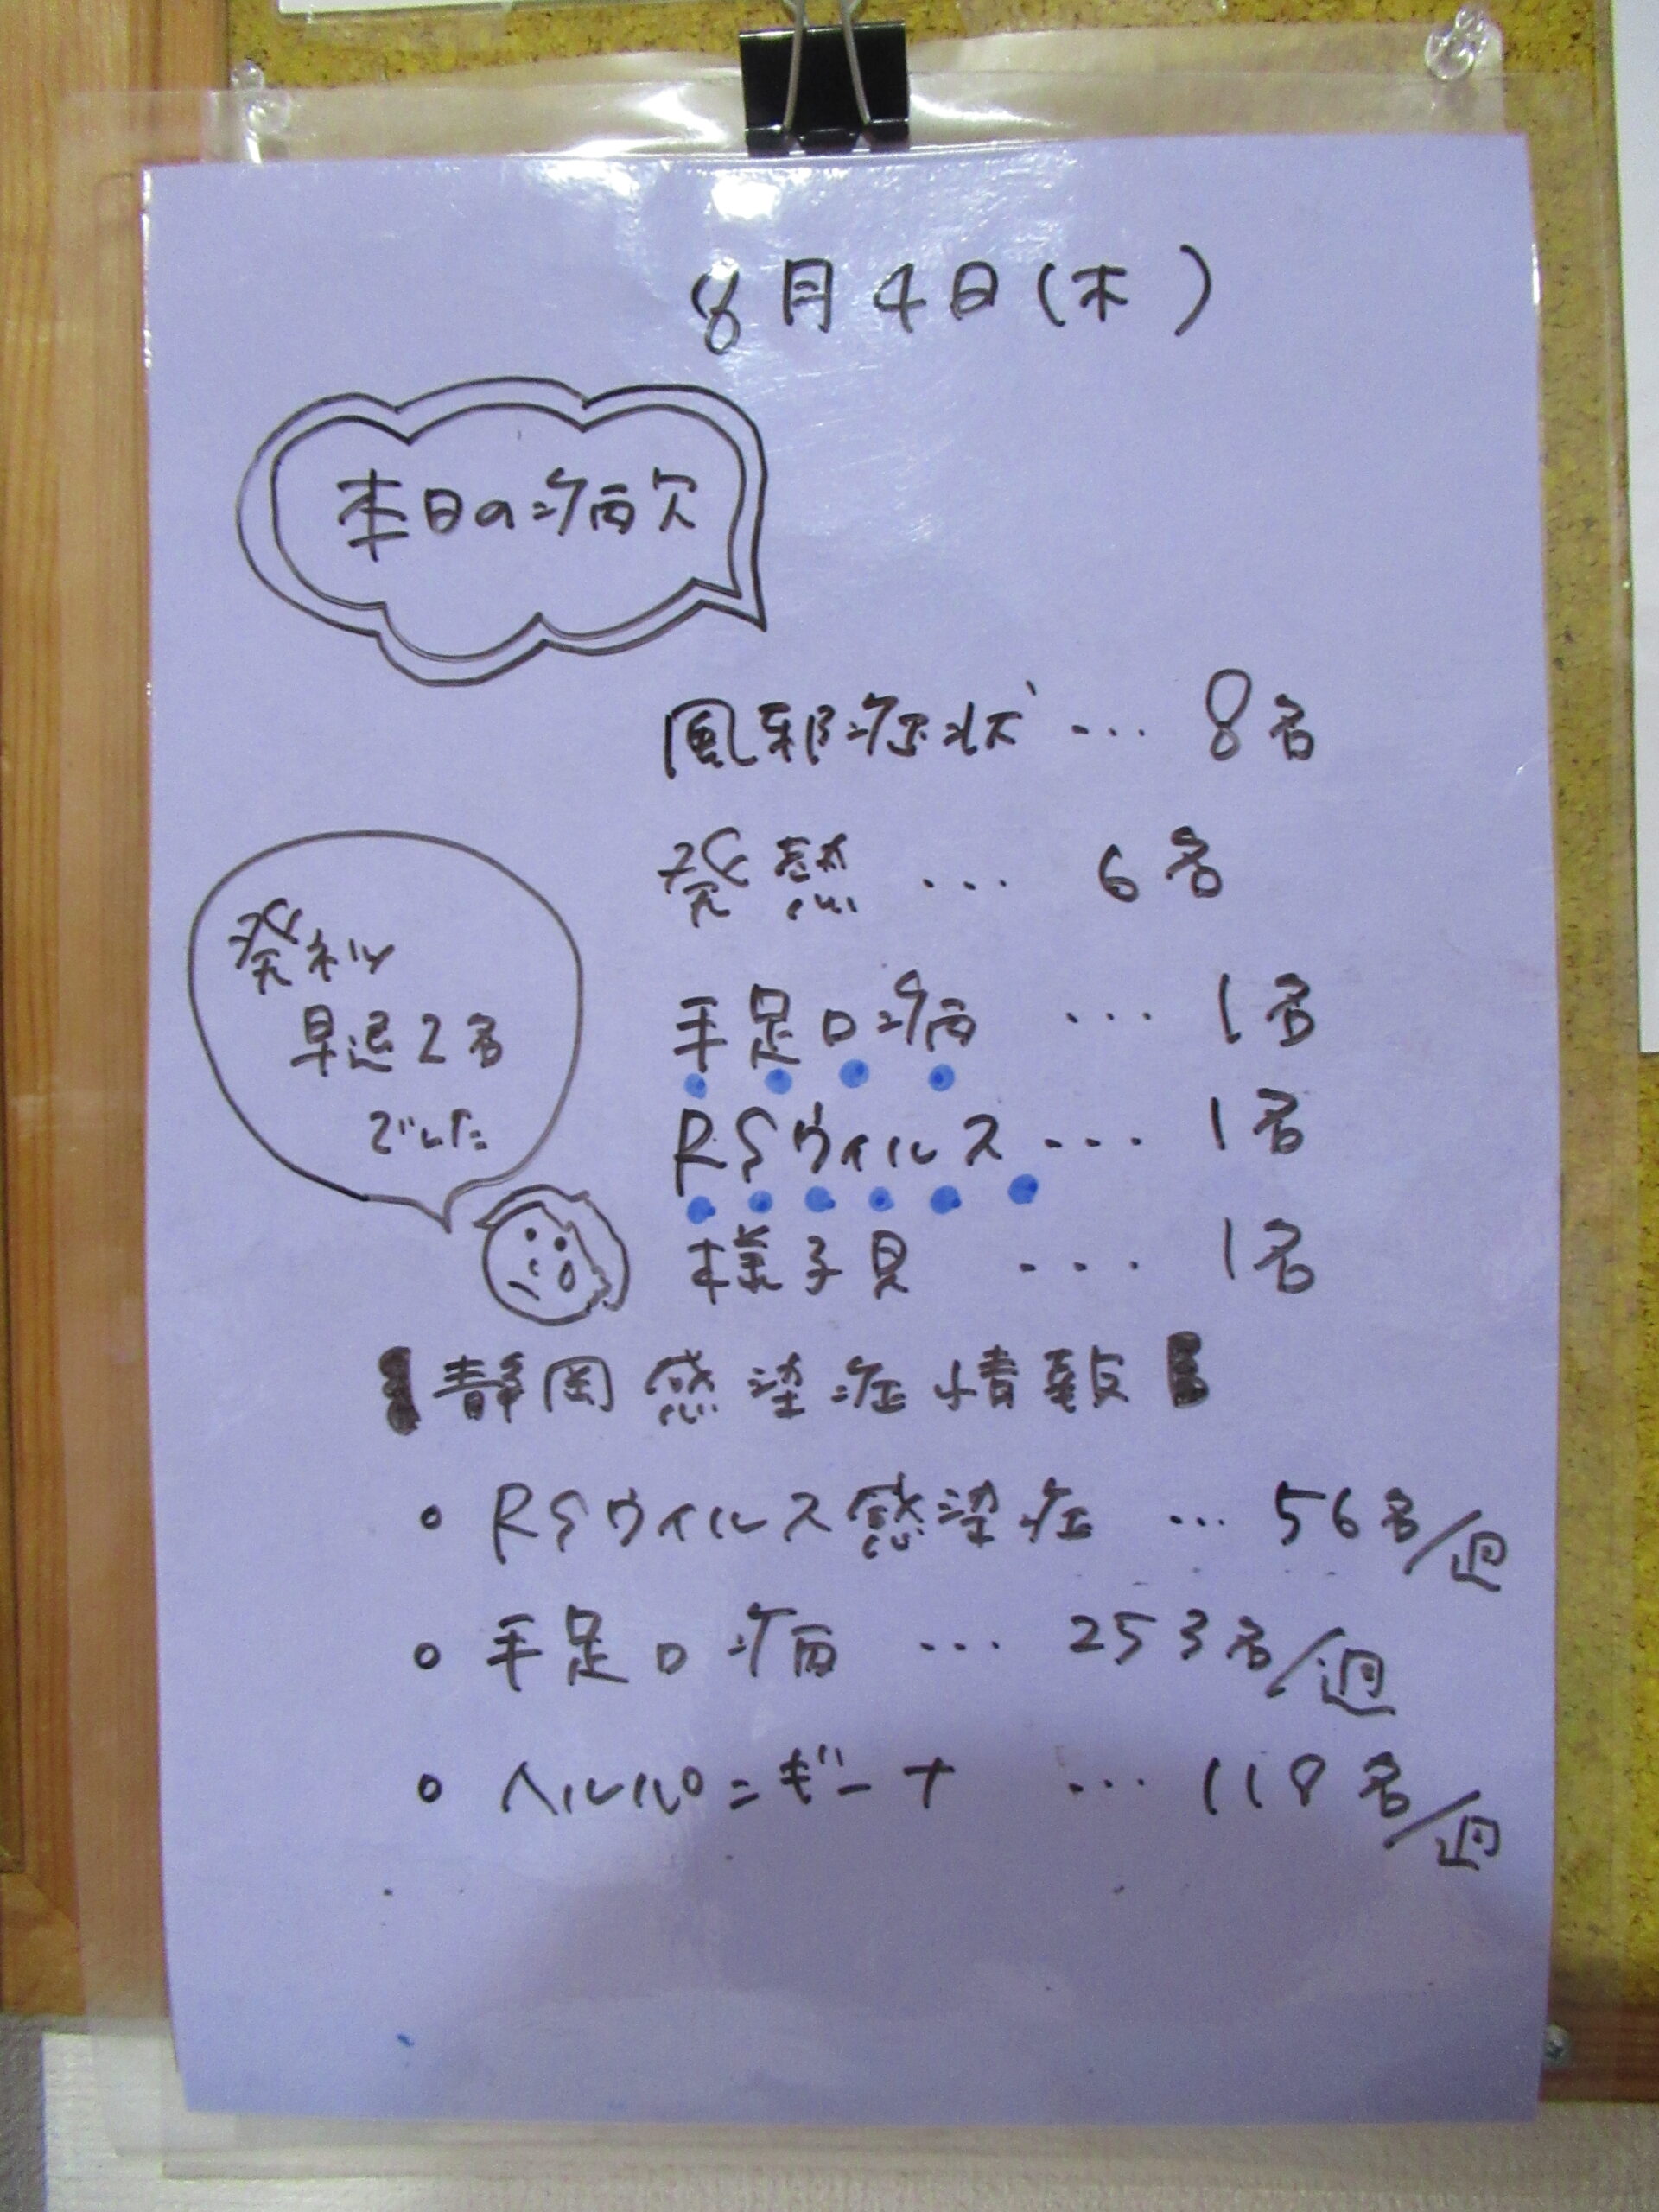 8月4日(木)
本日の病欠
風邪症状 … 8名
発熱 … 6名
手足口病 … 1名
RSウィルス … 1名
様子見 … 1名
発ネツ
早退2名
でした
静岡感染症情報
• RSウィルス感染症 … 56名/週
• 手足口病 … 253名/週
• ヘルパンギーナ … 118名/週